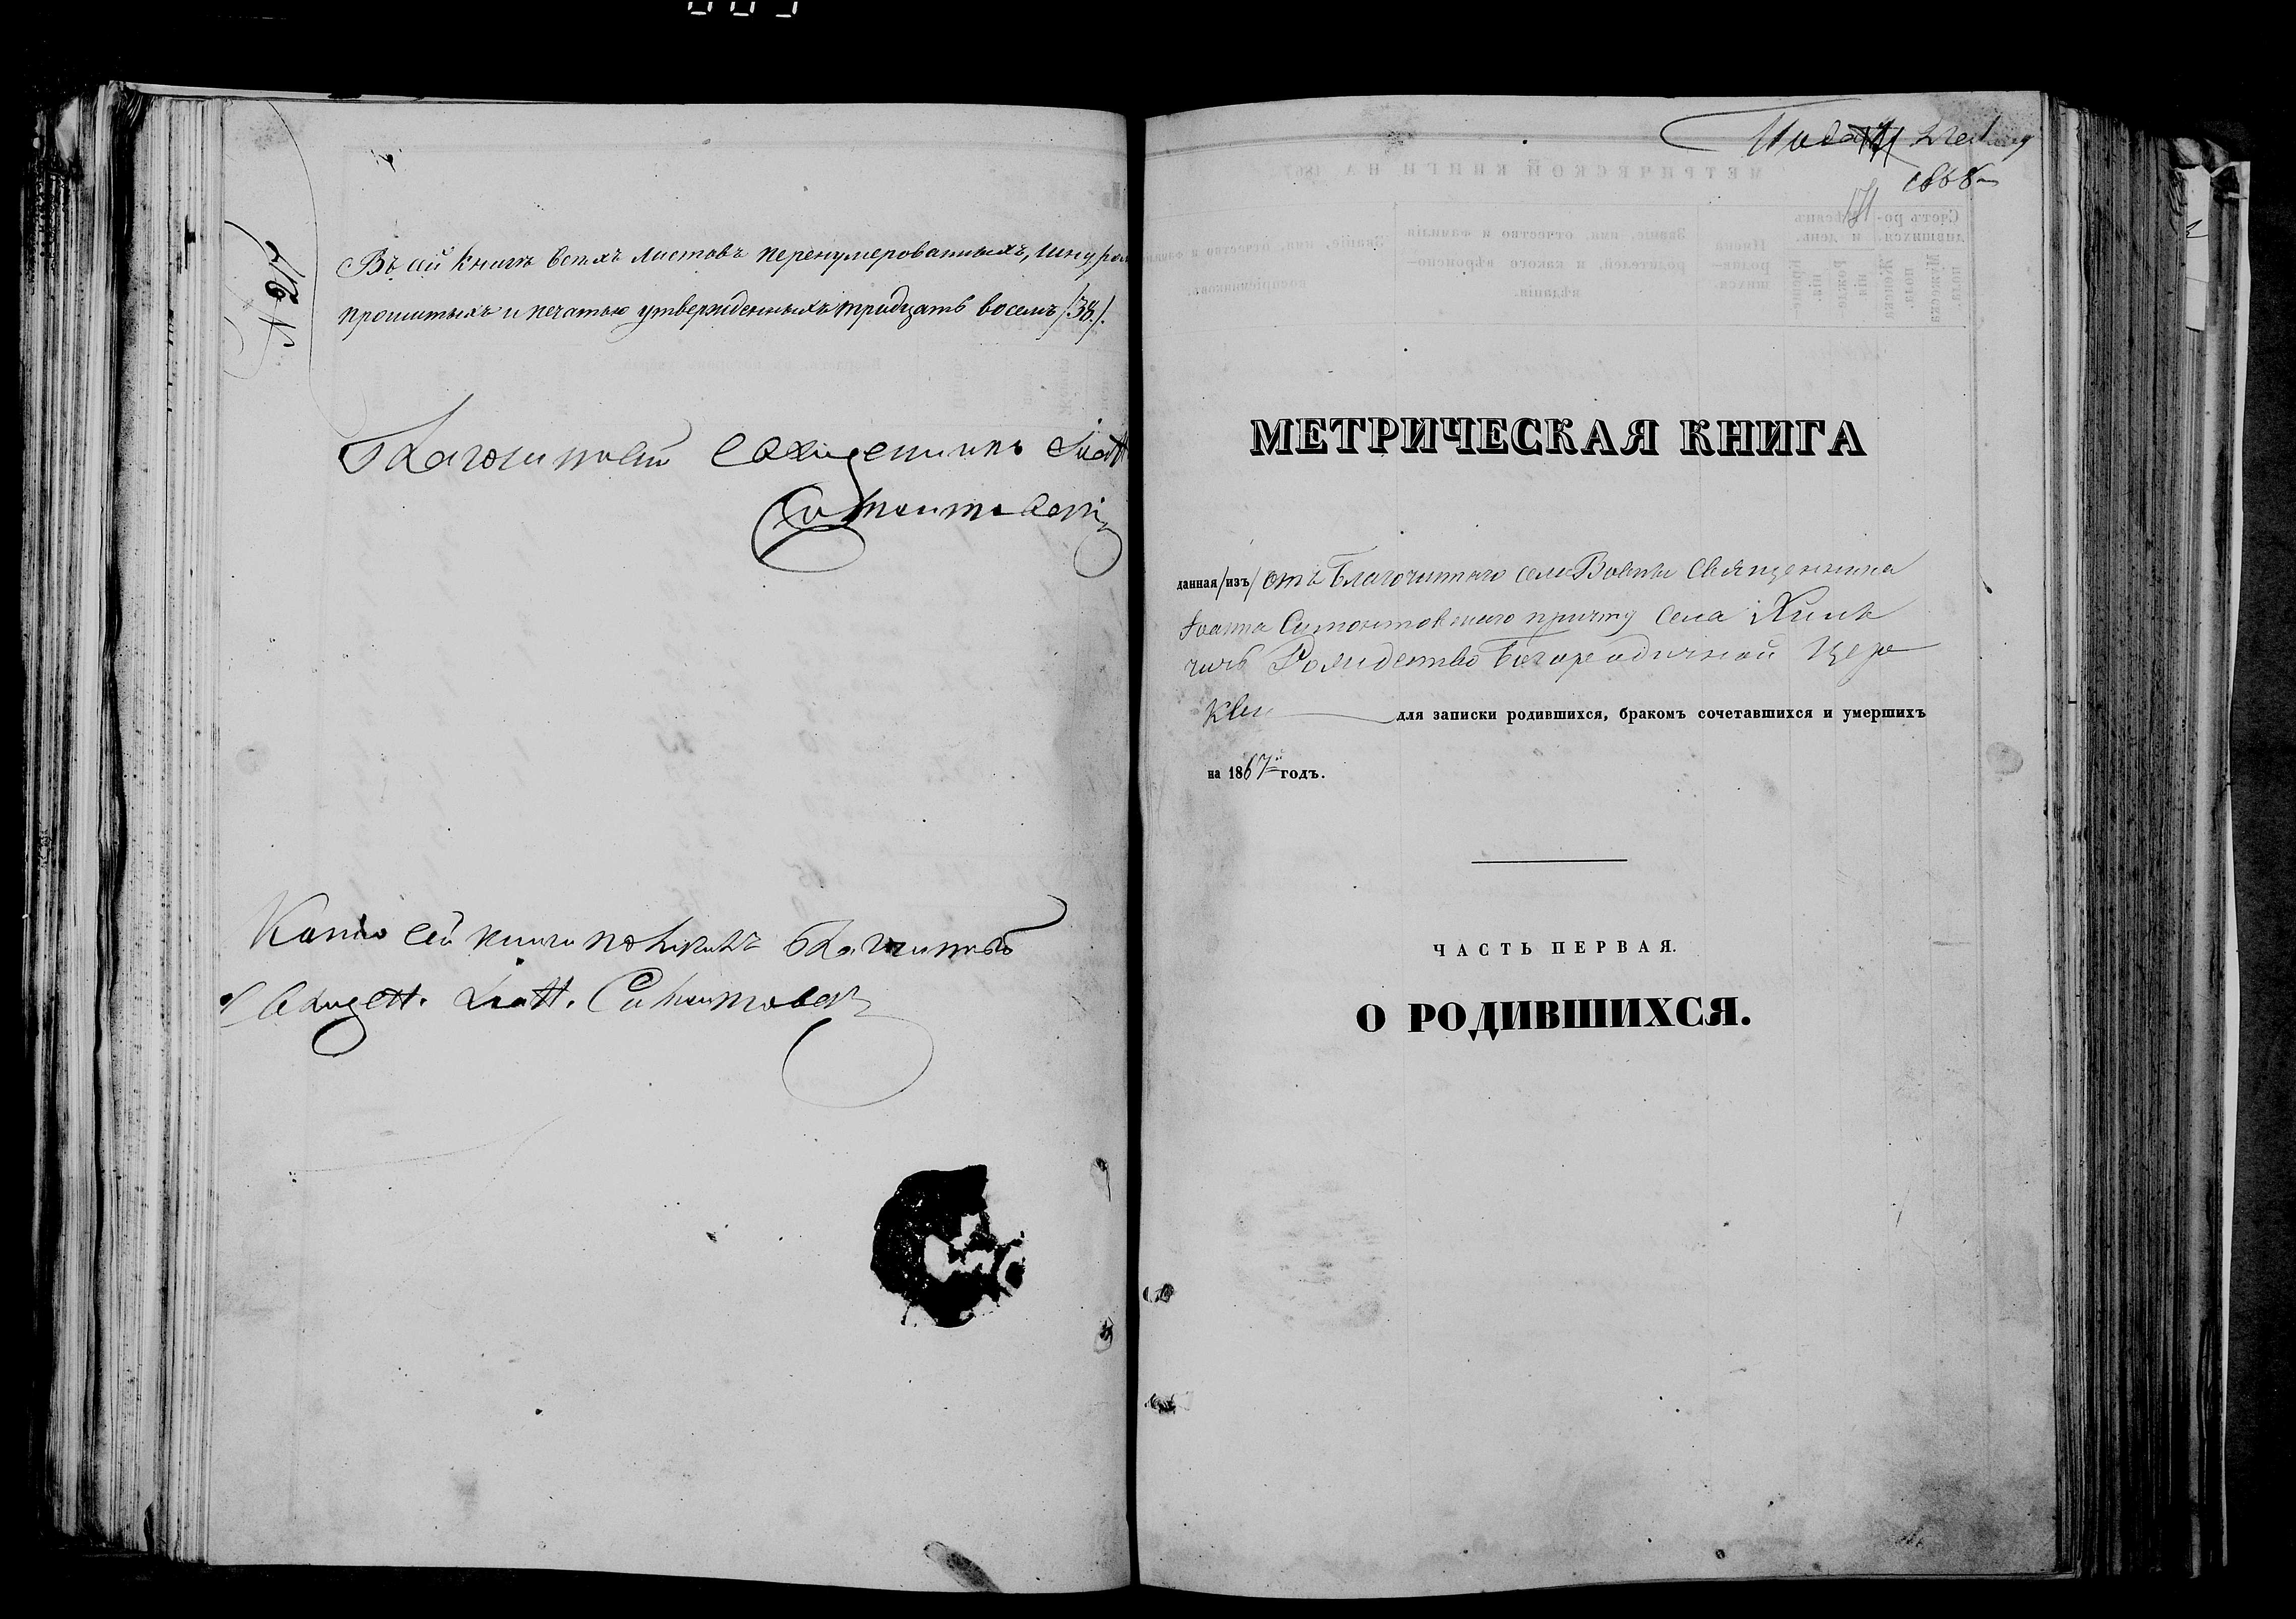 Въ сей книгѣ всѣхъ листовъ перенумерованныхъ, шнуром
прошитыхъ и печатью утвержденныхъ тридцать восемь /38./.
Благочинный священникъ Іоаннъ
Симонтовскій
Копію сей книги получилъ благочинный
Священ. Іоан. Симонтовскій
1868
МЕТРИЧЕСКАЯ КНИГА
данная /изъ/ отъ Благочиннаго села Священника
Іоанна Симонтовскаго причту села Хиль
чичь Рождество Богородичной Цер
кви для записки родившихся, бракомъ сочетавшихся и умершихъ
на 1867й годъ.
ЧАСТЬ ПЕРВАЯ.
О РОДИВШИХСЯ.